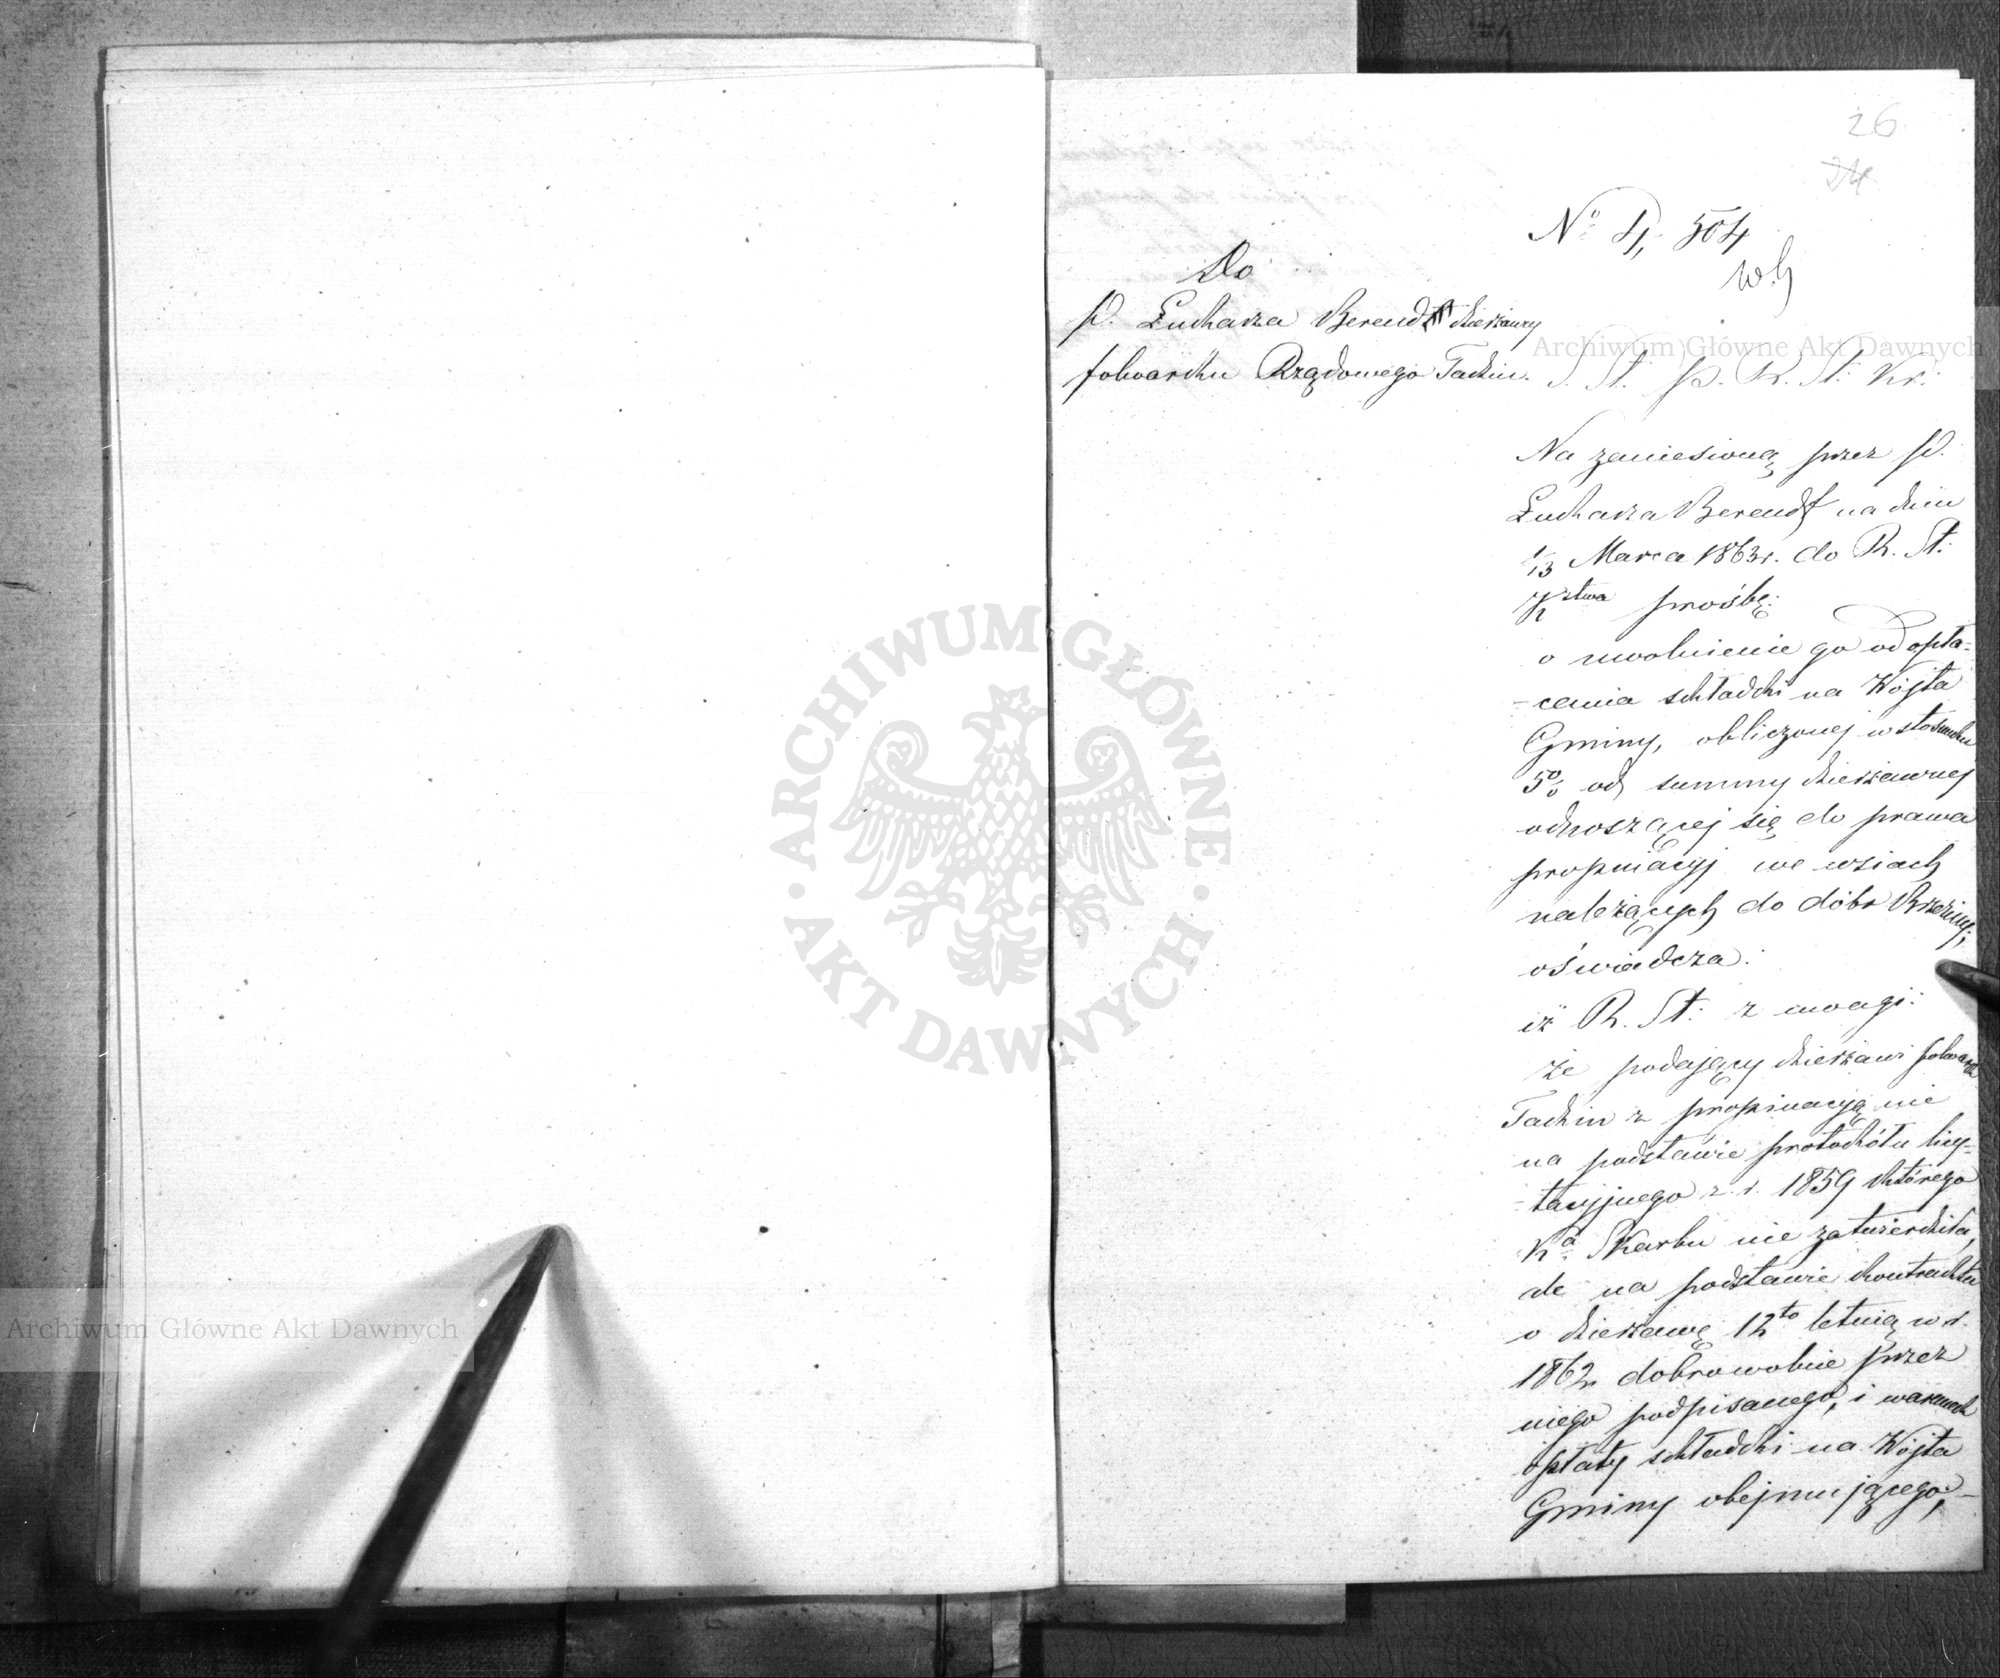 26
24
Nº 4,504
Do
P. Łukasza Berendt dzierżawcy
folwarku Rządowego Tadzin.
S. St. p. R. St: Kr:
Na zaniesioną przez P.
Łukasza Berendt na dniu
1/13 Marca 1863 r. do R. St:
K stwa prośbę:
o uwolnienie go od opła-
-cenia składki na Wójta
Gminy, obliczonej w stosunku
5% od summy dzierżawnej
odnoszącej się do prawa
propinacyj we wsiach
należących do dóbr Brzeziny,
oświadcza:
iż R. St: z uwagi:
że podający dzierżawi folwark
Tadzin z propinacyą nie
na podstawie protokółu licy-
-tacyjnego z r. 1859 którego
K a Skarbu nie zatwierdziła,
ale na podstawie kontraktu
o dzierżawę 12 to letnią w r.
1862 dobrowolnie przez
niego podpisanego, i warunek
opłaty składki na Wójta
Gminy obejmującego,
ARCHIWUM GŁÓWNE
AKT DAWNYCH
Archiwum Główne Akt Dawnych
Archiwum Główne Akt Dawnych